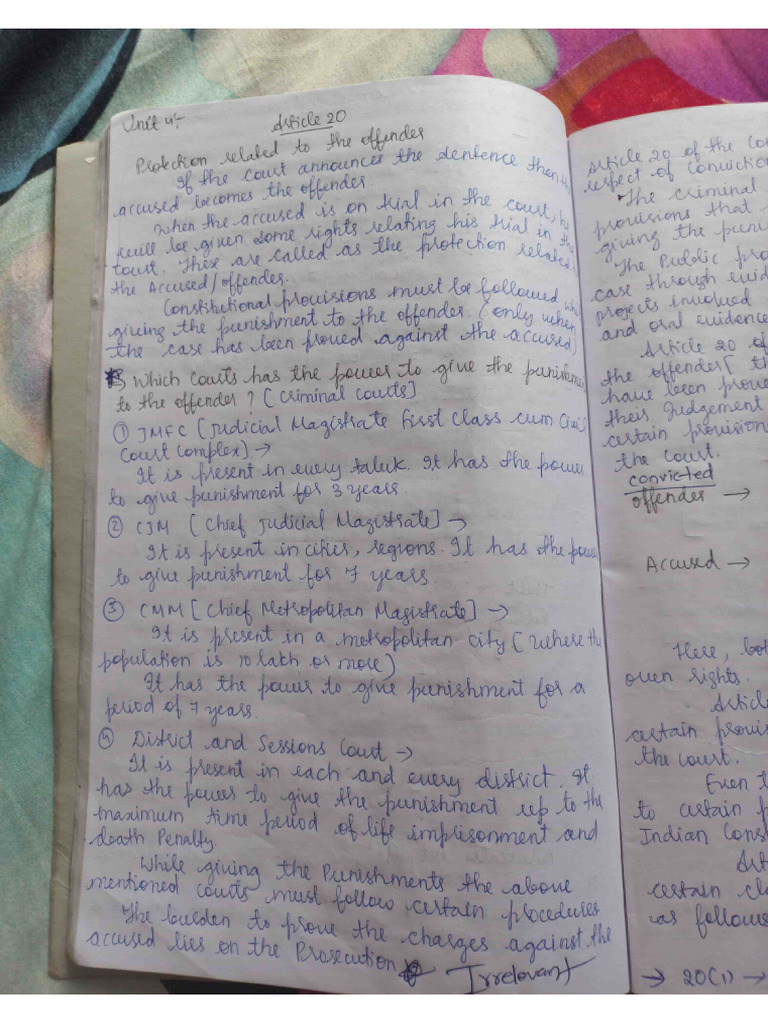 Unit 4:-
Article 20
Protection related to the offender
If the court announces the sentence then the
accused becomes the offender.
When the accused is on trial in the court, he
will be given some rights relating his trial in the
court. These are called as the protection related
the Accused/offender.
Constitutional provisions must be followed
giving the punishment to the offender. (only when
the case has been proved against the accused)
Which Courts has the power to give the punishment
to the offender? [Criminal Courts]
① JMFC [Judicial Magistrate First Class cum Civil
Court Complex] →
It is present in every taluk. It has the power
to give punishment for 3 years.
② CJM [Chief Judicial Magistrate] →
It is present in cities, regions. It has the power
to give punishment for 7 years.
③ CMM [Chief Metropolitan Magistrate] →
It is present in a metropolitan city (where the
population is 10 lakh or more)
It has the power to give punishment for a
period of 7 years.
④ District and Sessions Court →
It is present in each and every district. It
has the power to give the punishment up to the
maximum time period of life imprisonment and
death Penalty.
While giving the Punishments the above
mentioned courts must follow certain procedures
The burden to prove the charges against the
accused lies on the Prosecution
Irrelevant
Article 20 of the
respect of
The criminal
provisions that
giving the
The Public
case through
projects involved
and oral evidence
Article 20 of
the offender[
have been
their Judgement
certain
the Court.
convicted
offender →
Accused →
Here,
own rights.
certain
the court.
Even
to certain
Indian
certain
as follows
→ 20(1) →